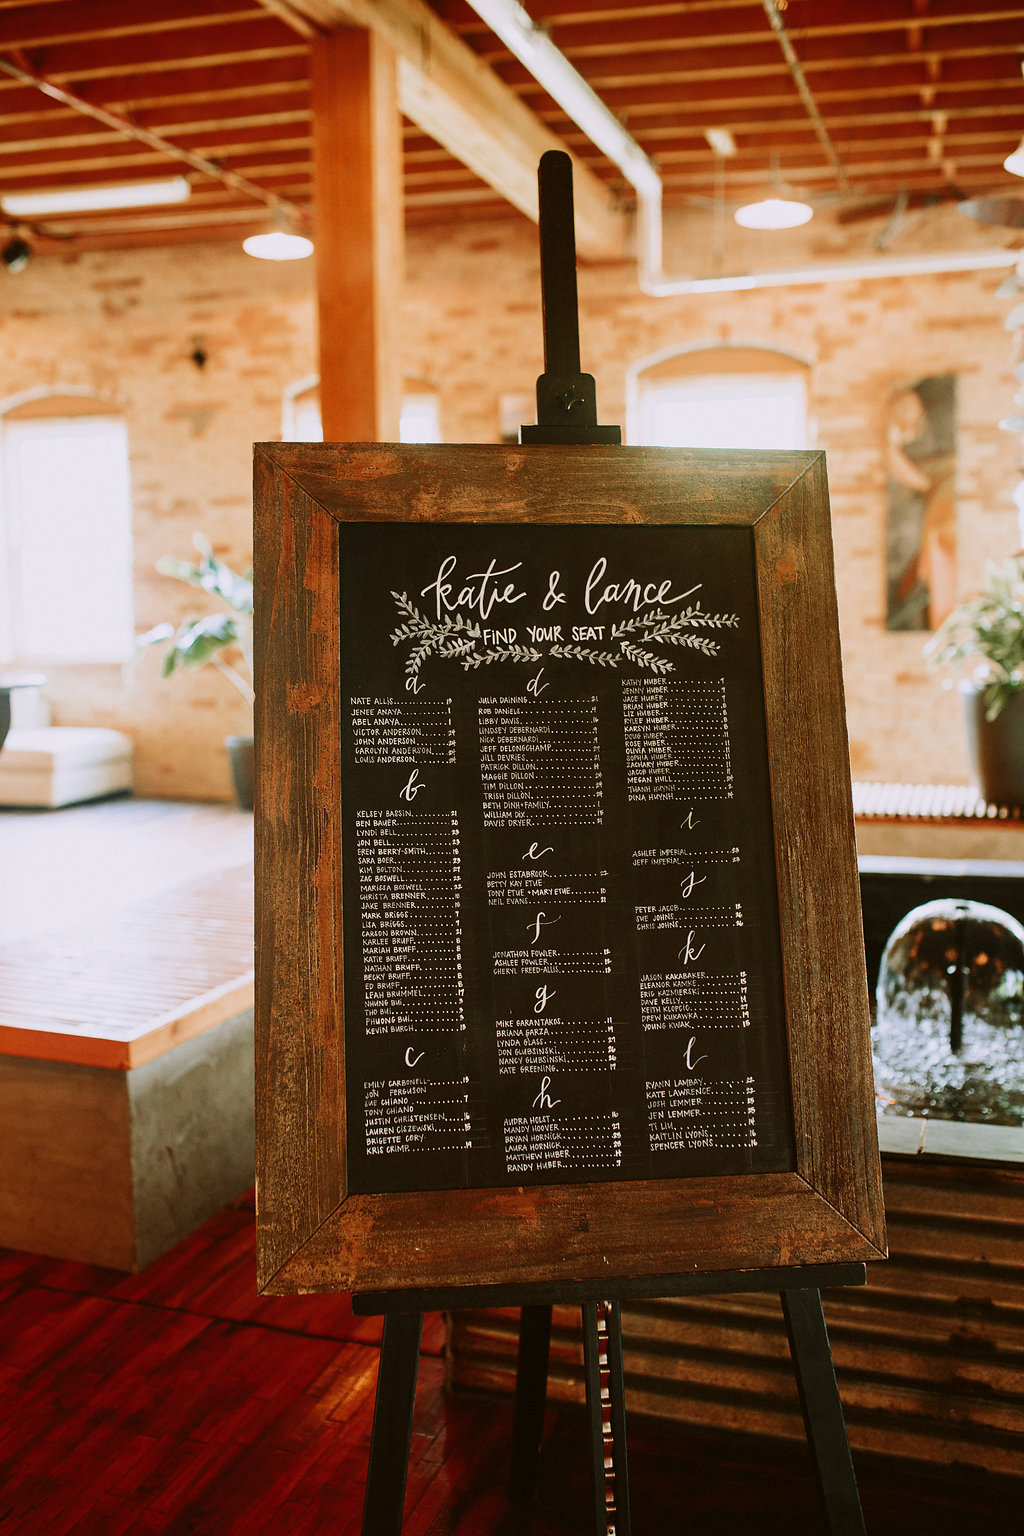 katie & lance
FIND YOUR SEAT
a
NATE ALLIS
JENEE ANAYA 1
ABEL ANAYA 1
VICTOR ANDERSON 24
JOHN ANDERSON 24
CAROLYN ANDERSON 24
LOUIS ANDERSON 24
b
KELSEY BASSIN 21
BEN BAUER 20
LYNDI BELL 23
JON BELL 23
EREN BERRY-SMITH 18
SARA BOER 23
KIM BOLTON 27
ZAC BOSWELL 22
MARISSA BOSWELL 22
CHRISTA BRENNER
JAKE BRENNER
MARK BRIGGS 7
LISA BRIGGS 7
CARSON BROWN 21
KARLEE BRUFF 8
MARIAH BRUFF 8
KATIE BRUFF 8
NATHAN BRUFF 8
BECKY BRUFF 8
ED BRUFF 8
LEAH BRUMMEL 17
NHUNG BUI 3
THO BUI 3
PHUONG BUI 3
KEVIN BURCH 13
c
EMILY CARBONELL- 13
JON FERGUSON
SUE CHIANO 7
TONY CHIANO
JUSTIN CHRISTENSEN 16
LAUREN CISZEWSKI 15
BRIGETTE CORY
KRIS CRIMP 19
d
JULIA DAINING 21
ROB DANIELL
LIBBY DAVIS
LINDSEY DEBERNARDI
NICK DEBERNARDI
JEFF DELONGCHAMP
JILL DEVRIES
PATRICK DILLON
MAGGIE DILLON
TIM DILLON
TRISH DILLON
BETH DINH + FAMILY 1
WILLIAM DIX
DAVIS DRYER 21
e
JOHN ESTABROOK 22
BETTY KAY ETUE
TONY ETUE + MARY ETUE 10
NEIL EVANS 21
f
JONATHON FOWLER 12
ASHLEE FOWLER 12
CHERYL FREED-ALLIS 13
g
MIKE GARANTAKOS 11
BRIANA GARZA 19
LYNDA GLASS 27
DON GLUBSINSKI 26
NANCY GLUBSINSKI 26
KATE GREENING 17
h
AUDRA HOLST 16
MANDY HOOVER 27
BRYAN HORNICK 25
LAURA HORNICK 25
MATTHEW HUBER 14
RANDY HUBER 9
KATHY HUBER 9
JENNY HUBER
JACE HUBER
BRIAN HUBER
LIZ HUBER
RYLEE HUBER
KARSYN HUBER
DOUG HUBER 11
ROSE HUBER 11
OLIVIA HUBER 11
SOPHIA HUBER 11
ZACHARY HUBER 11
JACOB HUBER 11
MEGAN HULL
THANH HUYNH 2
DINA HUYNH
i
ASHLEE IMPERIAL 23
JEFF IMPERIAL 23
j
PETER JACOB 12
SUE JOHNS 26
CHRIS JOHNS 26
k
JASON KAKABAKER 12
ELEANOR KAMKE 15
ERIC KAZMIERSKI 17
DAVE KELLY
KEITH KLOPCIC 27
DREW KUKAWKA 19
YOUNG KWAK 15
l
RYANN LAMBAY 22
KATE LAWRENCE 22
JOSH LEMMER 25
JEN LEMMER 25
TI LIU 14
KAITLIN LYONS 16
SPENCER LYONS 16